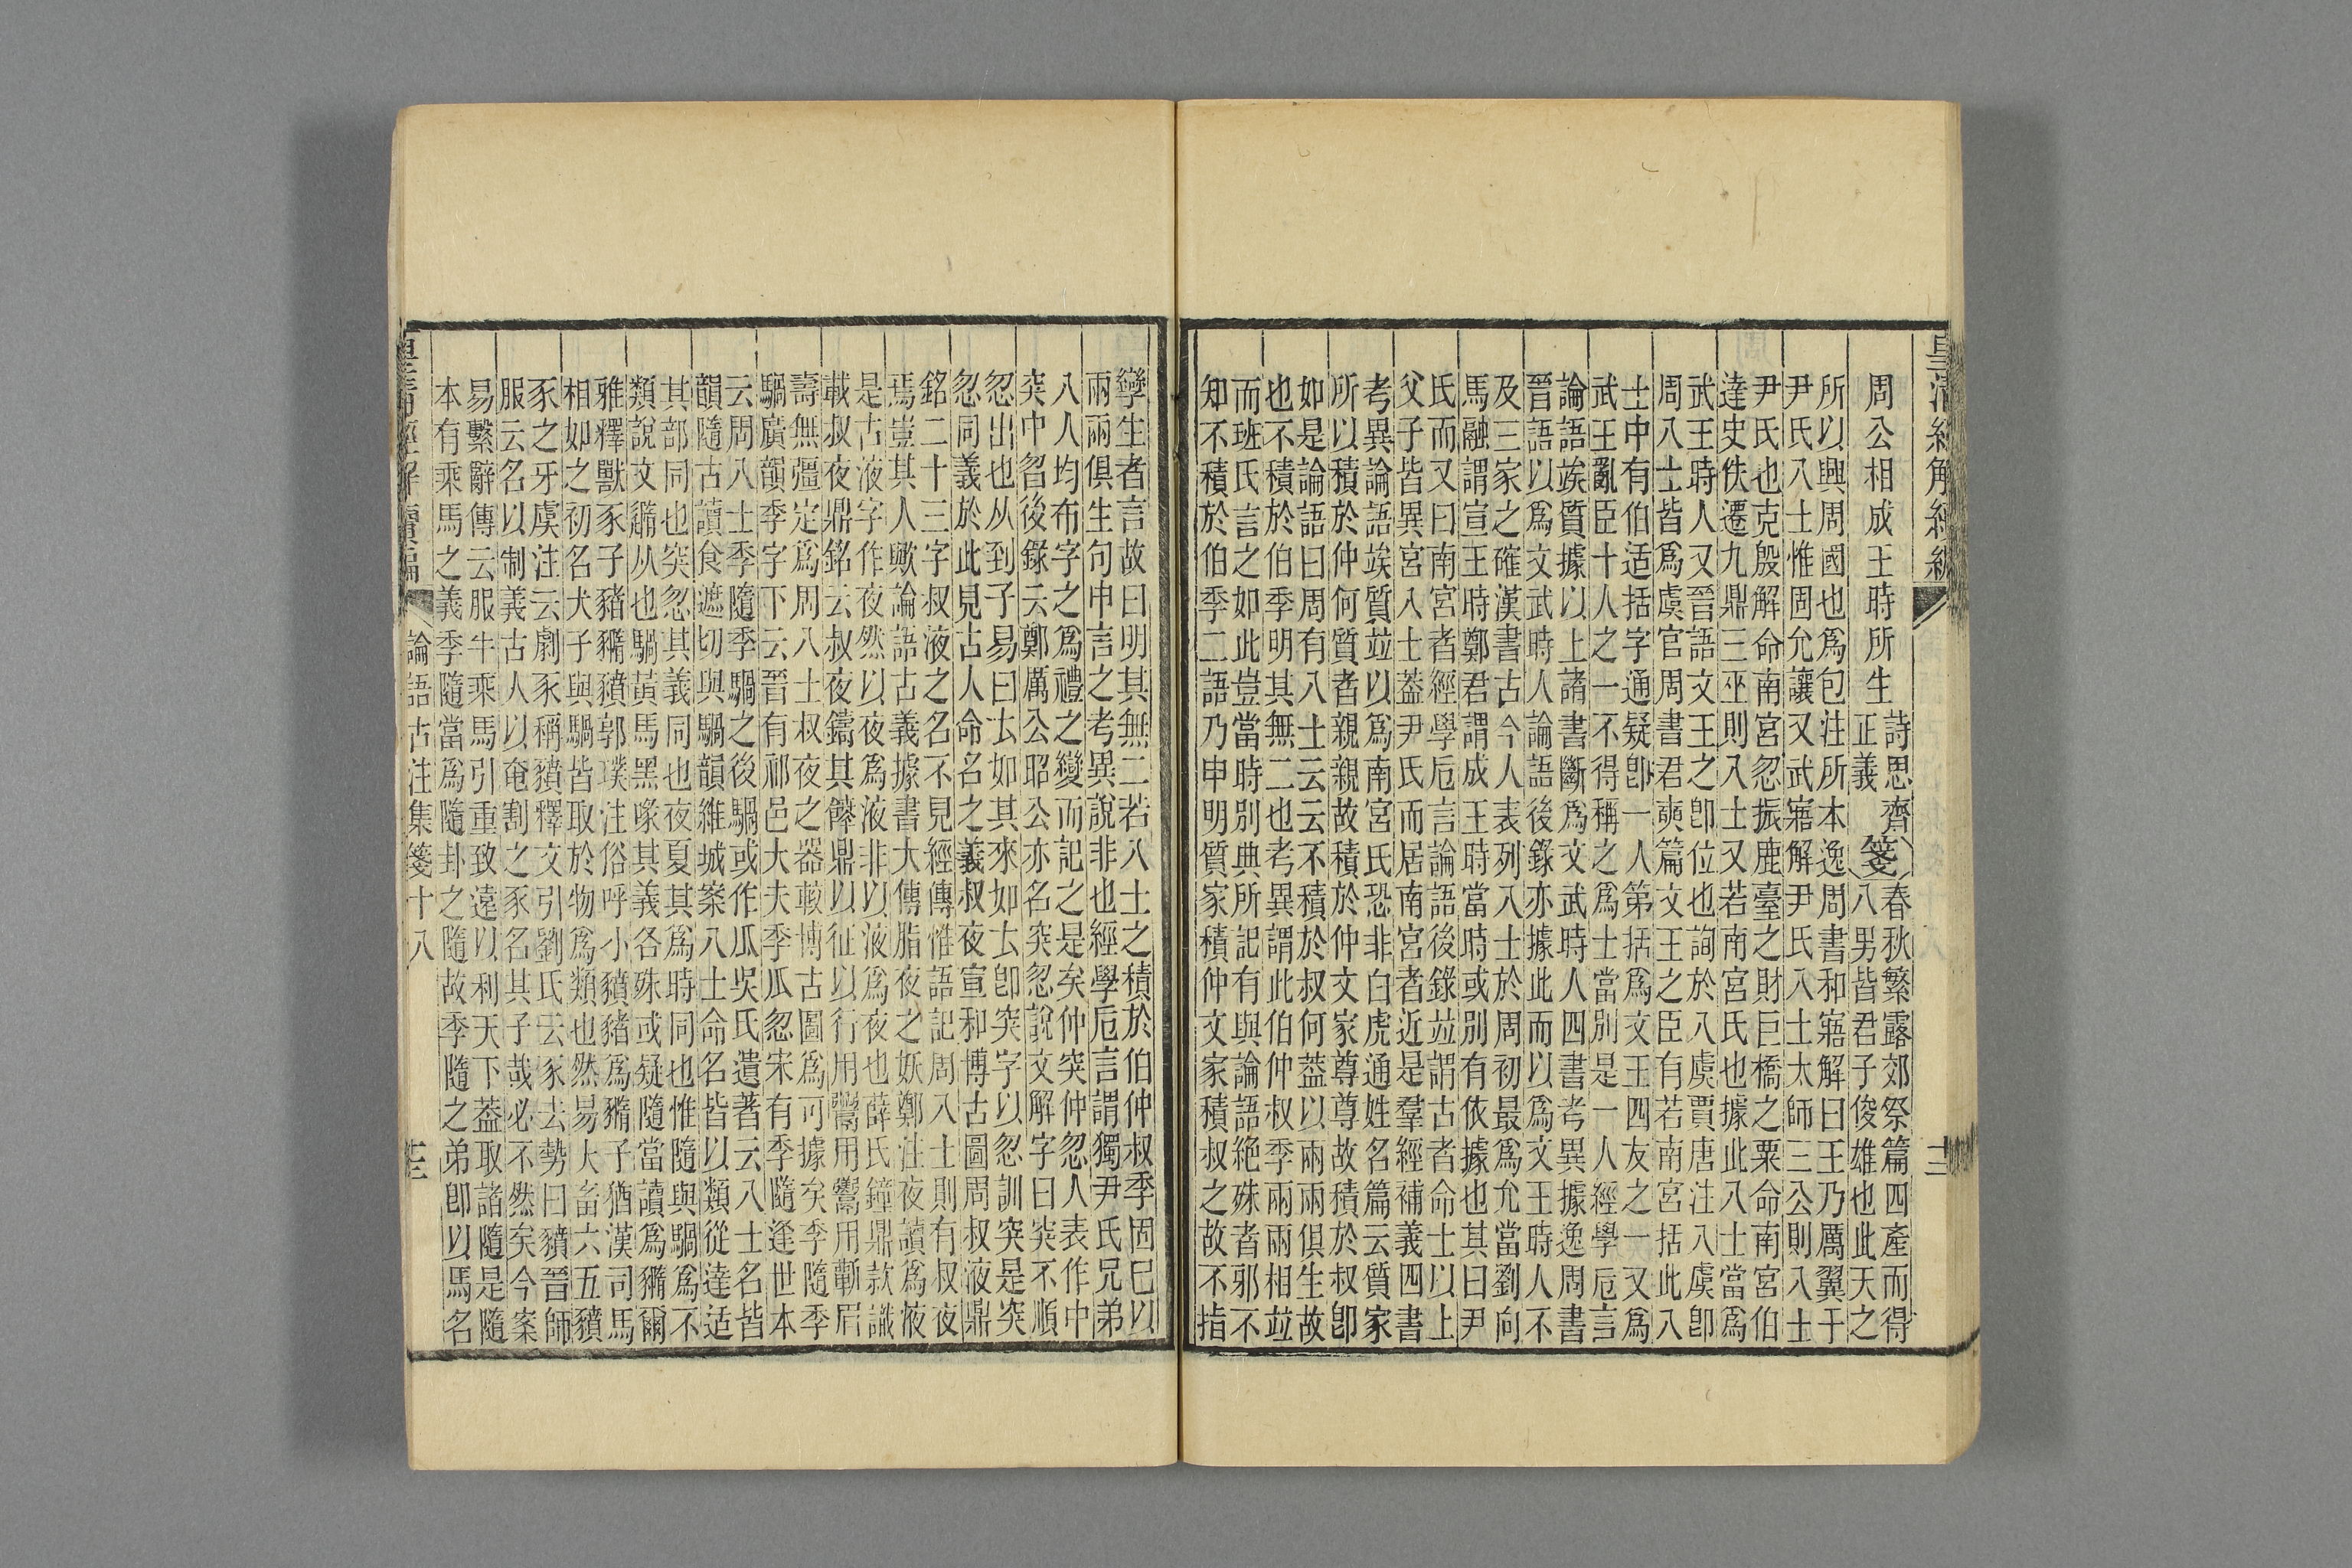 皇清經解續編
十二
周公相成王時所生
詩思齊
正義
箋
春秋繁露郊祭篇四產而得
八男皆君子俊雄也此天之
所以興周國也爲包注所本逸周書和寤解曰王乃厲翼于
尹氏八士惟固允讓又武寤解尹氏八士太師三公則八士
尹氏也克殷解命南宮忽振鹿臺之財巨橋之粟命南宮伯
達史佚遷九鼎三巫則八士又若南宮氏也據此八士當爲
武王時人又晉語文王之卽位也詢於八虞賈唐注八虞卽
周八士皆爲虞官周書君奭篇文王之臣有若南宮括此八
士中有伯适括字通疑卽一人第括爲文王四友之一又爲
武王亂臣十人之一不得稱之爲士當別是一人經學卮言
論語竢質據以上諸書斷爲文武時人四書考異據逸周書
晉語以爲文武時人論語後錄亦據此而以爲文王時人不
及三家之確漢書古今人表列八士於周初最爲允當劉向
馬融謂宣王時鄭君謂成王時當時或別有依據也其曰尹
氏而又曰南宮者經學卮言論語後錄竝謂古者命士以上
父子皆異宮八士葢尹氏而居南宮者近是羣經補義四書
考異論語竢質竝以爲南宮氏恐非白虎通姓名篇云質家
所以積於仲何質者親親故積於仲文家尊尊故積於叔卽
如是論語曰周有八士云云不積於叔何葢以兩兩俱生故
也不積於伯季明其無二也考異謂此伯仲叔季兩兩相竝
而班氏言之如此豈當時別典所記有與論語絕殊者邪不
知不積於伯季二語乃申明質家積仲文家積叔之故不指
孿生者言故曰明其無二若八士之積於伯仲叔季固巳以
兩兩俱生句申言之考異說非也經學卮言謂獨尹氏兄弟
八人均布字之爲禮之變而記之是矣仲突仲忽人表作中
突中曶後錄云鄭厲公昭公亦名突忽說文解字曰突不順
忽出也从到子易曰𠫓如其來如𠫓卽突字以忽訓突是突
忽同義於此見古人命名之義叔夜宣和博古圖周叔液鼎
銘二十三字叔液之名不見經傳惟語記周八士則有叔夜
焉豈其人歟論語古義據書大傳脂夜之妖鄭注夜讀爲液
是古液字作夜然以夜爲液非以液爲夜也薛氏鐘鼎款識
載叔夜鼎銘云叔夜鑄其饙鼎以征以行用鬻用鬻用蘄眉
壽無疆定爲周八士叔夜之器較博古圖爲可據矣季隨季
騧廣韻季字下云晉有祁邑大夫季瓜忽宋有季隨逢世本
云周八士季隨季騧之後騧或作瓜吳氏遺著云八士名皆
韻隨古讀食遮切與騧韻維城案八士命名皆以類從達适
其部同也突忽其義同也夜夏其爲時同也惟隨與騧爲不
類說文从也騧黃馬黑喙其義各殊或疑隨當讀爲豴爾
雅釋獸豕子豬豴豶郭璞注俗呼小豶豬爲豴子猶漢司馬
相如之初名犬子與騧皆取於物爲類也然易大畜六五豶
豕之牙虞注云劇豕稱豶釋文引劉氏云豕去勢曰豶晉師
服云名以制義古人以奄割之豕名其子哉必不然矣今案
易繫辭傳云服牛乘馬引重致遠以利天下葢取諸隨是隨
本有乘馬之義季隨當爲隨卦之隨故季隨之弟卽以馬名
皇清經解續編
論語古注集箋十八
十三